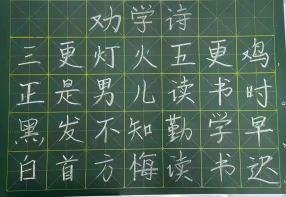 劝学诗
三更灯火五更鸡
正是男儿读书时
黑发不知勤学早
白首方悔读书迟